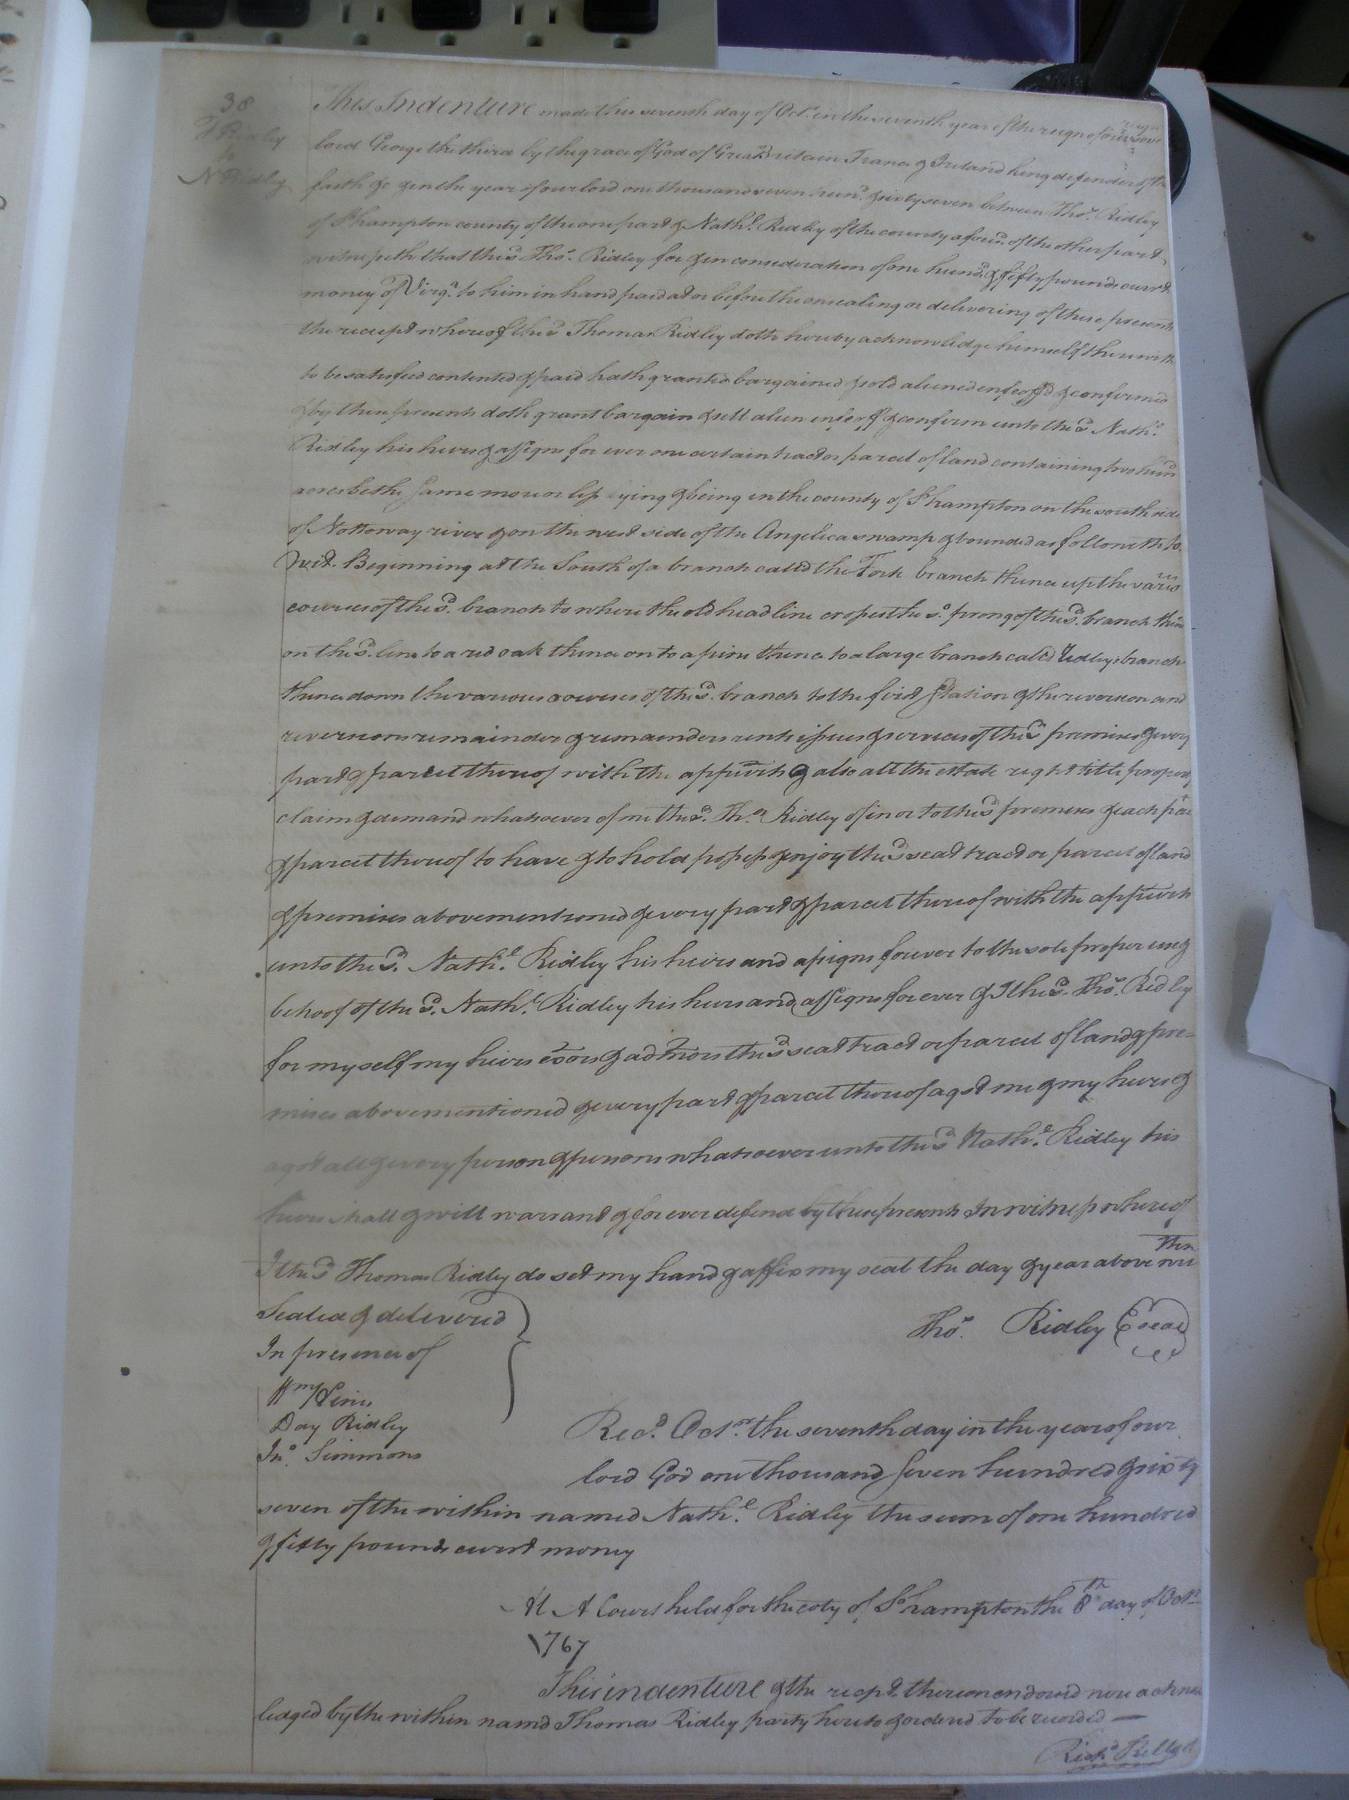 38
T Ridley
to
N Ridley
This Indenture made this seventh day of Octr. in the seventh year of the reign of our sove
lord George the third by the grace of God of Great Britain France & Ireland king defender of the
faith &c & in the year of our lord one thousand seven hund. & sixty seven between Thos. Ridley
of S.hampton county of the one part & Nathl. Ridley of the county afores.d of the other part
witnesseth that the sd. Thos. Ridley for & in consideration of one hund. & fifty pounds curr.t
money of Virga. to him in hand paid at or before the ensealing or delivering of these presents
the receipt whereof the sd. Thomas Ridley doth hereby acknowledge himself therewith
to be satisfied contented & paid hath granted bargained & sold aliened enfeoff'd & confirmed
& by these presents doth grant bargain & sell alien enfeoff & confirm unto the sd. Nathl.
Ridley his heirs & assigns for ever one certain tract or parcel of land containing two hund
acres be the same more or less lying & being in the county of S.hampton on the south side
of Nottoway river & on the west side of the Angelica swamp & bounded as followeth to
wit. Beginning at the South of a branch called the Fork branch thence up the various
courses of the sd. branch to where the old head line crosses the so. prong of the sd. branch thence
on the sd. line to a red oak thence on to a pine thence to a large branch called Ridleys branch
thence down the various courses of the sd. branch to the first station & the reversion and
reversions remainder & remainders rents issues & services of the sd. premises & every
part & parcel thereof with the appurts & also all the estate right title property
claim & demand whatsoever of me the sd. Thos. Ridley of in or to the sd. premises & each part
& parcel thereof to have & to hold possess & enjoy the sd. seat tract or parcel of land
& premises abovementioned & every part & parcel thereof with the appurts
unto the sd. Nathl. Ridley his heirs and assigns forever to the sole proper use &
behoof of the sd. Nathl. Ridley his heirs and assigns for ever & I the sd. Thos. Ridley
for myself my heirs exors & admors the sd. seat tract or parcel of land & pre=
mises abovementioned & every part & parcel thereof agst me & my heirs &
agst all & every person & persons whatsoever unto the sd. Nathl. Ridley his
heirs shall & will warrant & for ever defend by these presents In witness whereof
I the sd. Thomas Ridley do set my hand & affix my seal the day & year above wri
tten
Sealed & delivered
Thos. Ridley (seal)
In presence of
Wm
Day Ridley
Jno. Simmons
Recd. Octor. the seventh day in the year of our
lord God one thousand seven hundred & sixty
seven of the within named Nathl. Ridley the sum of one hundred
& fifty pounds curr.t money
At A Court held for the coty of So.hampton the 8th day of Octr.
1767
This indenture & the recpt. thereon endorsed were acknow
ledged by the within namd Thomas Ridley party hereto & ordered to be recorded —
Richd. Kello